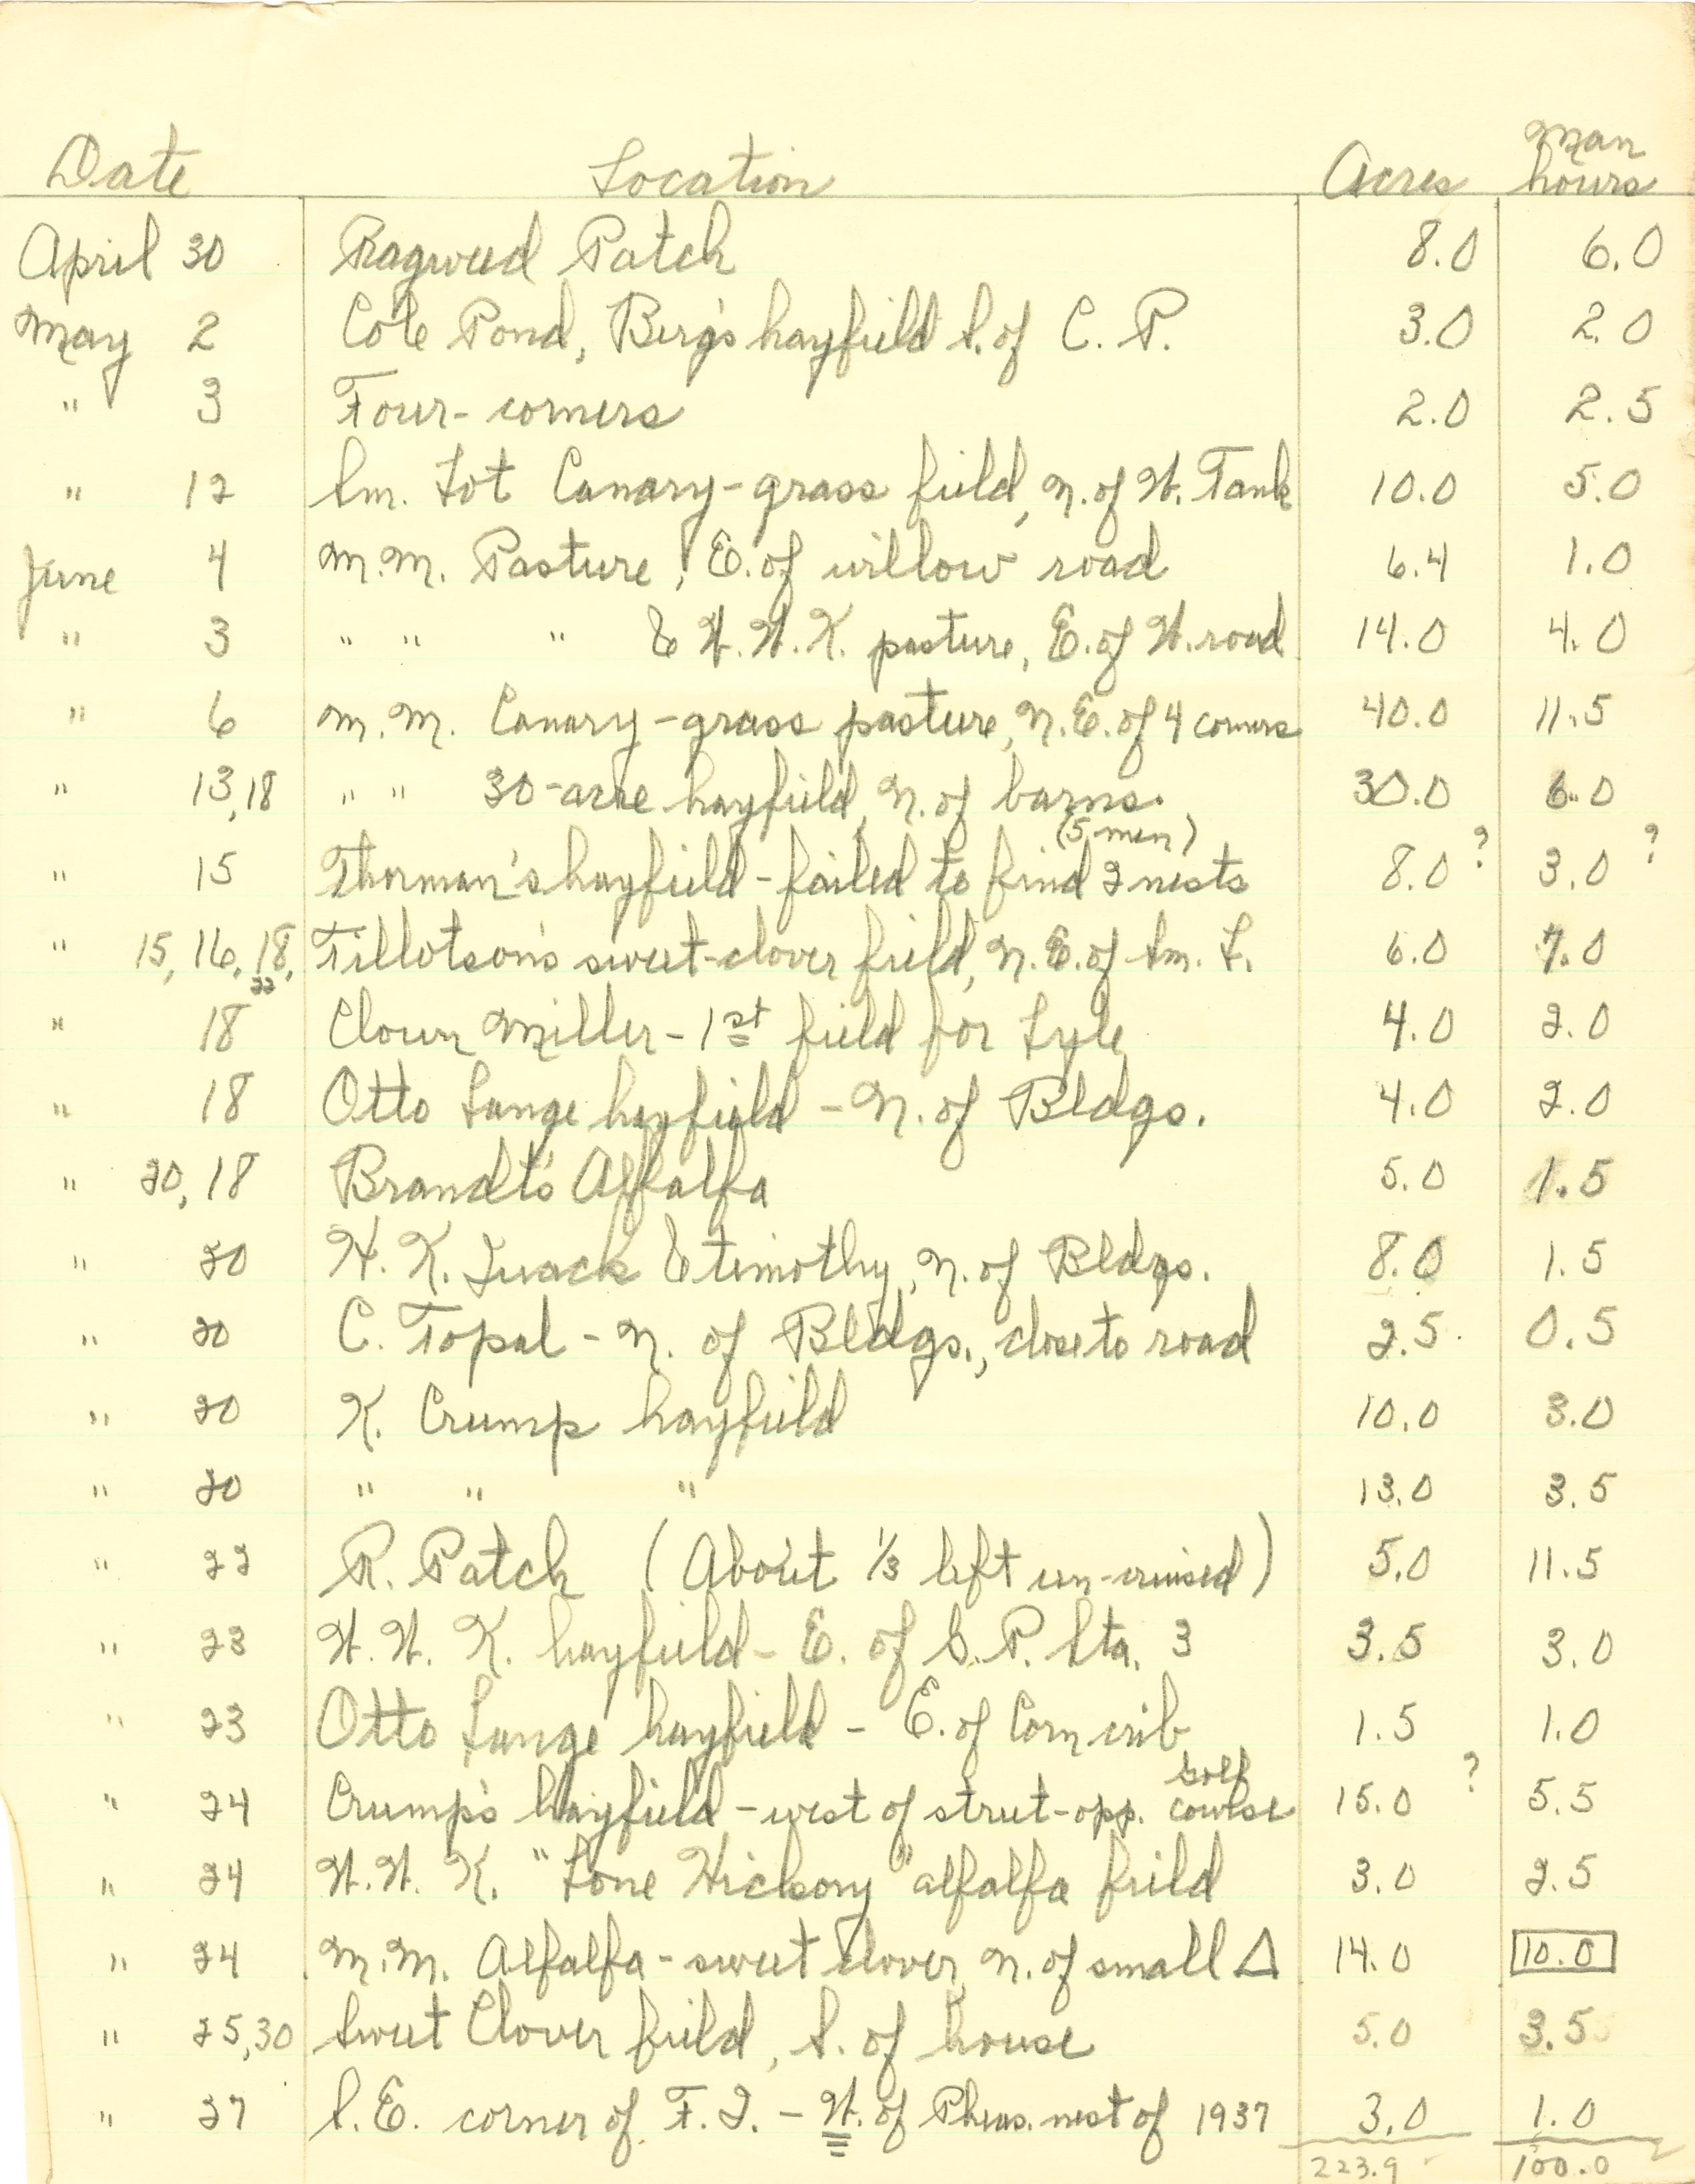 Date Location Acres man hours
April 30 Ragweed Patch 8.0 6.0
May 2 Cole Pond, Berg's hayfield S. of C. P. 3.0 2.0
" 3 Four-corners 2.0 2.5
" 12 Sm. Lot Canary-grass field, N. of W. Tank 10.0 5.0
June 4 M.M. Pasture, E. of willow road 6.4 1.0
" 3 " " " & W.W.K. pasture, E. of W. road 14.0 4.0
" 6 M.M. Canary-grass pasture, N.E. of 4 corners 40.0 11.5
" 13,18 " " 30-acre hayfield, N. of barns. 30.0 6.0
" 15 Thorman's hayfield - failed to find 2 nests (5 men) 8.0 ? 3.0 ?
" 15, 16, 18, 22 Tillotson's sweet-clover field, N.E. of Sm. L. 6.0 7.0
" 18 Clown Miller - 1st field for Lyle 4.0 2.0
" 18 Otto Lange hayfield - N. of Bldgs. 4.0 2.0
" 20, 18 Brandt's Alfalfa 5.0 1.5
" 20 H. K. Quack & timothy, N. of Bldgs. 8.0 1.5
" 20 C. Topal - N. of Bldgs., close to road 2.5 0.5
" 20 K. Crump hayfield 10.0 3.0
" 20 " " " 13.0 3.5
" 22 R. Patch (About 1/3 left un-cruised) 5.0 11.5
" 23 W. W. K. hayfield - E. of G. P. Sta. 3 3.5 3.0
" 23 Otto Lange hayfield - E. of Corn crib 1.5 1.0
" 24 Crump's hayfield - west of street - opp. golf course 15.0 ? 5.5
" 24 W.W. K. "Lone Hickory" alfalfa field 3.0 2.5
" 24 M.M. Alfalfa - sweet clover, N. of small Δ 14.0 10.0
" 25,30 Sweet Clover field, S. of house 5.0 3.5
" 27 S.E. corner of F. I. - W. of Pheas. nest of 1937 3.0 1.0
223.9 100.0